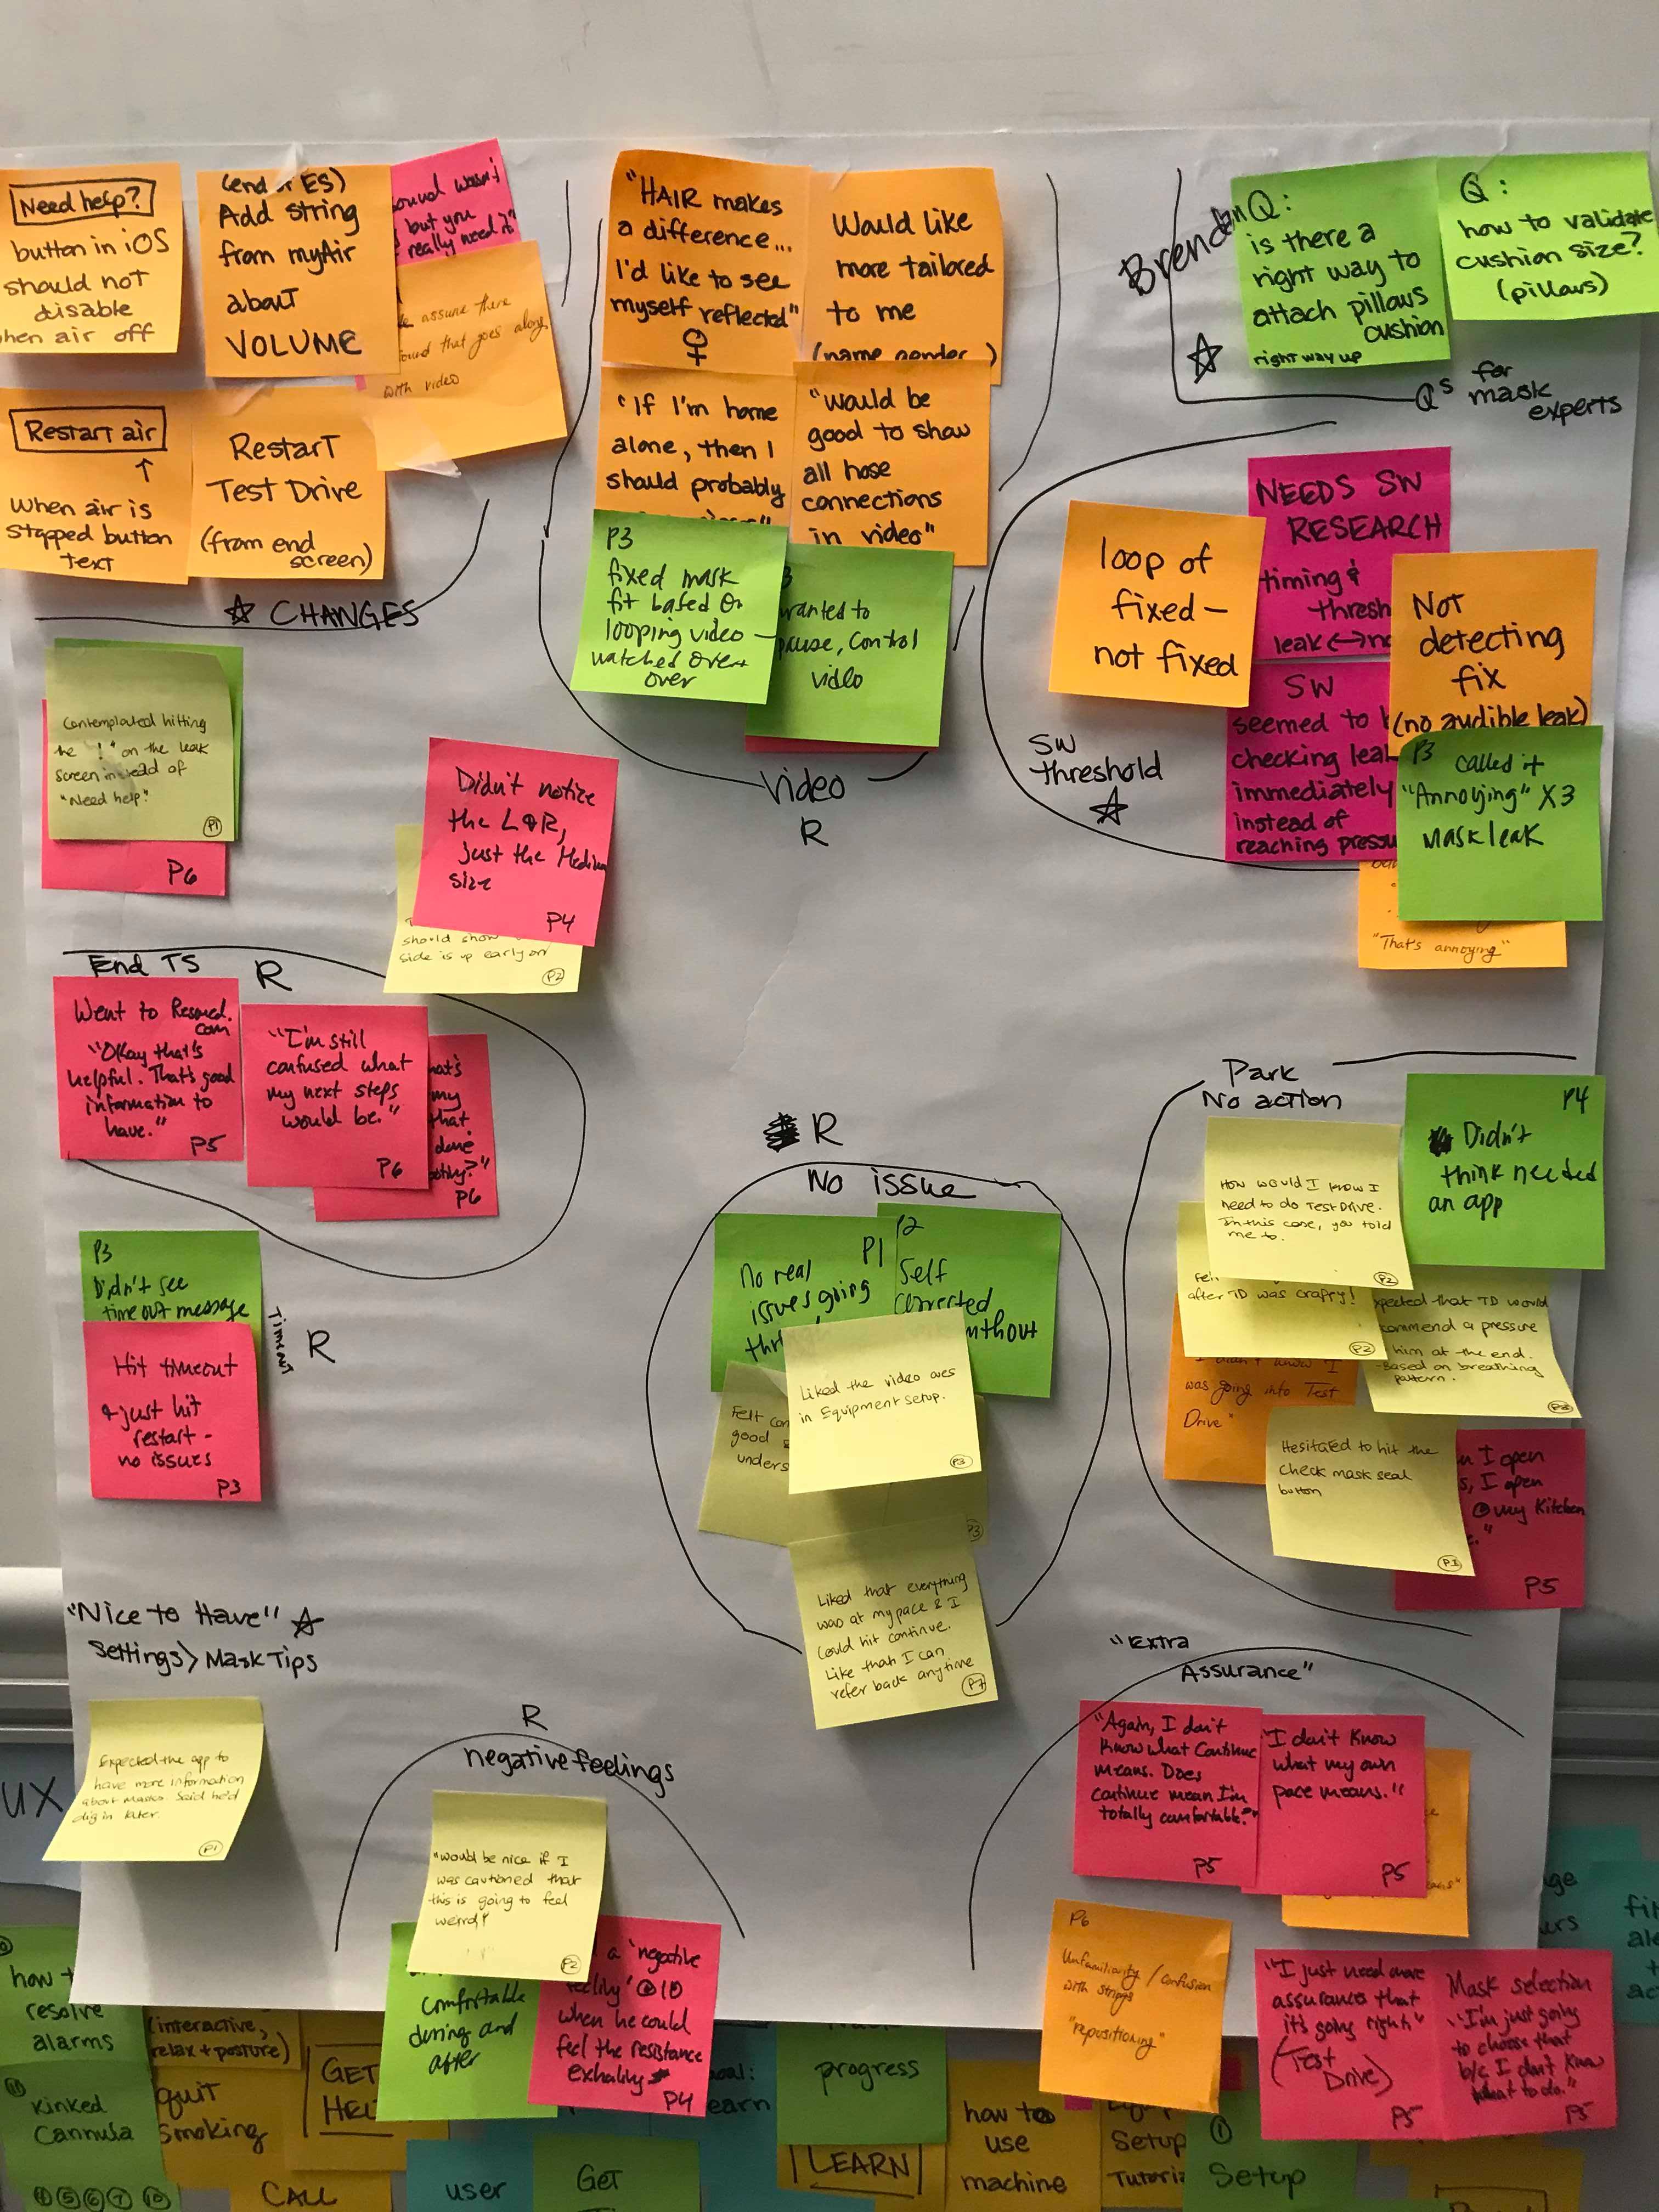 Need help?
button in iOS
should not
disable
hen air off
(end of ES)
Add string
from myAir
about
VOLUME
sound wasn't
but you
really need it"
assume there
sound that goes along
with video
Restart air
↑
When air is
stopped button
text
Restart
Test Drive
(from end
screen)
☆ CHANGES
"HAIR makes
a difference...
I'd like to see
myself reflected"
♀
Would like
more tailored
to me
(name gender )
"If I'm home
alone, then I
should probably
"would be
good to show
all hose
connections
in video"
P3
fixed mask
fit based on
looping video -
watched over +
over
wanted to
pause, control
video
Video
R
Brendan
☆
Q:
is there a
right way to
attach pillows
cushion
right way up
Q:
how to validate
cushion size?
(pillows)
Qs for
mask
experts
loop of
fixed -
not fixed
NEEDS SW
RESEARCH
timing &
thresh
leak ↔ no
Not
detecting
fix
(no audible leak)
SW
seemed to
checking leak
immediately
instead of
reaching pressu
P3 called it
"Annoying" X3
mask leak
"That's annoying"
SW
threshold
☆
Contemplated hitting
the "!" on the leak
screen instead of
"Need help."
P1
P6
Didn't notice
the L&R,
just the Medium
size
P4
should show
side is up early on
P2
End TS R
Went to Resmed.
com
"Okay that's
helpful. That's good
information to
have."
P5
"I'm still
confused what
my next steps
would be."
P6
my
that
done
P6
P3
Didn't see
time out message
Timeout
R
Hit timeout
& just hit
restart -
no issues
P3
R
No issue
P1
No real
issues going
P2
Self
corrected
without
Liked the video aves
in Equipment setup.
P3
Felt
good
unders
P3
Liked that everything
was at my pace & I
could hit continue.
Like that I can
refer back anytime
P7
Park
No action
How would I know I
need to do Test Drive.
In this case, you told
me to.
P2
P4
Didn't
think needed
an app
after TD was crappy!
P2
xpected that TD would
commend a pressure
him at the end.
-Based on breathing
pattern.
I didn't know I
was going into Test
Drive"
Hesitated to hit the
check mask seal
button
P1
I open
s, I open
@ my kitchen
"
P5
"Nice to Have" ☆
Settings > Mask Tips
Expected the app to
have more information
about masks. Said he'd
dig in later.
P1
UX
R
negative feelings
"would be nice if I
was cautioned that
this is going to feel
weird"
P2
comfortable
during and
after
a "negative
feeling" @ 10
when he could
feel the resistance
exhaling
P4
"Extra
Assurance"
"Again, I don't
know what continue
means. Does
continue mean I'm
totally comfortable?"
P5
"I don't know
what my own
pace means."
P5
P6
Unfamiliarity / confusion
with strings
"repositioning"
"I just need more
assurance that
it's going right"
(Test
Drive)
P5
Mask selection
"I'm just going
to choose that
b/c I don't know
what to do."
P5
how t
resolve
alarms
(interactive,
relax + posture)
GET
HEL
Kinked
Cannula
quit
smoking
CALL
user
Get
progress
earn
LEARN
how to
use
machine
Setup
Tutoria
Setup